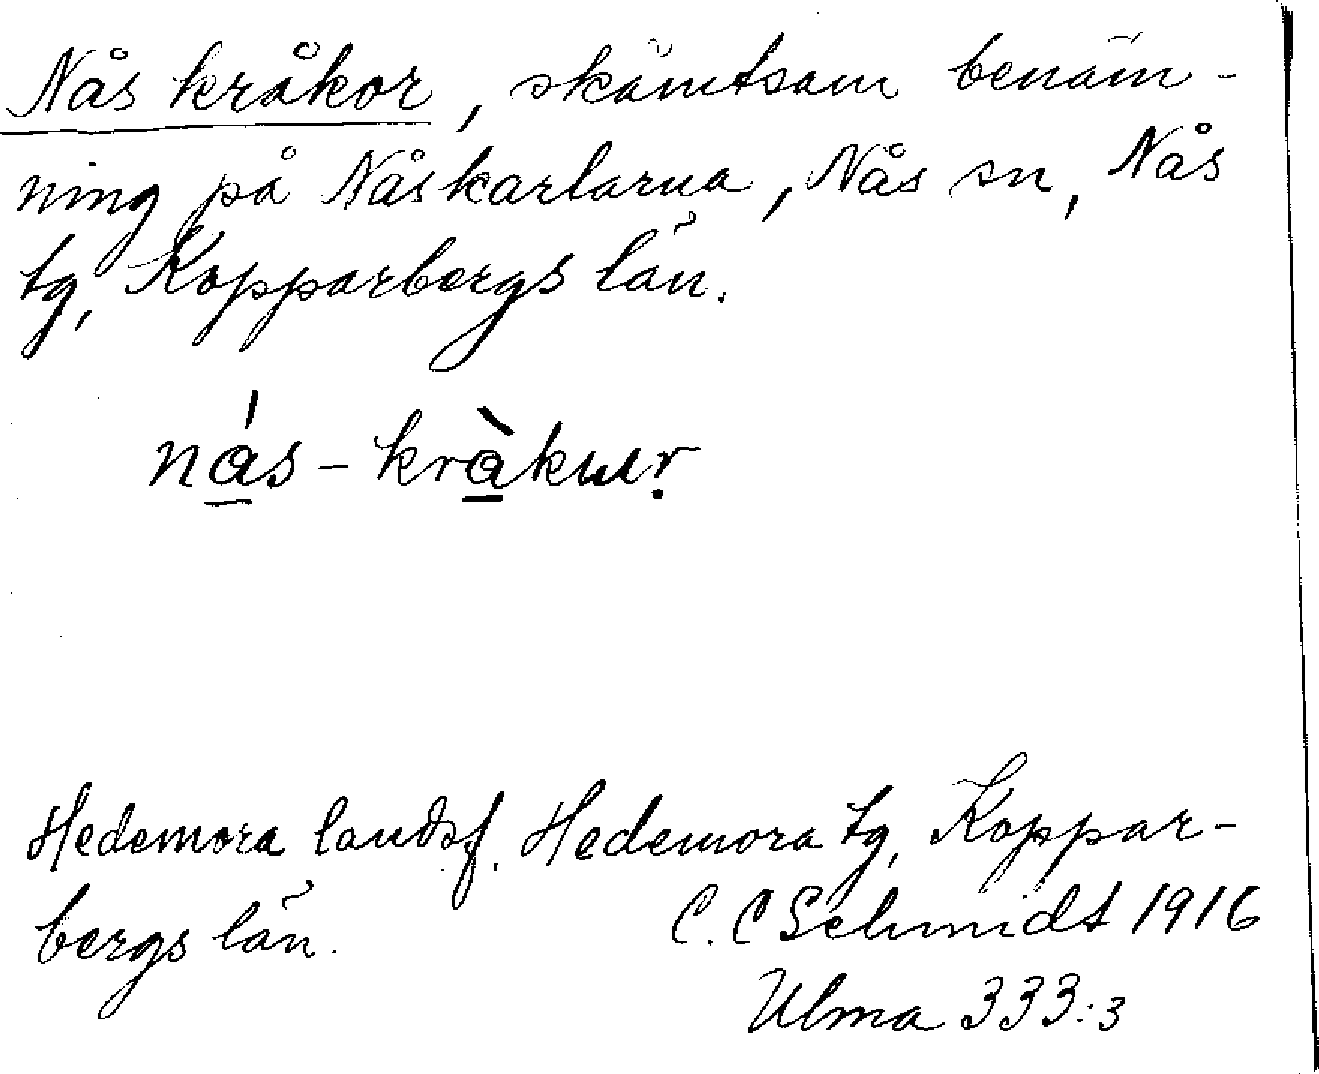 Nås kråkor, skämtsam benäm-
ning på Nåskarlarna, Nås sn, Nås
tg, Kopparbergs län.
nás - kràkuṛ
Hedemora landsf. Hedemora tg, Koppar-
bergs län.
C. C Schmidt 1916
Ulma 333:3